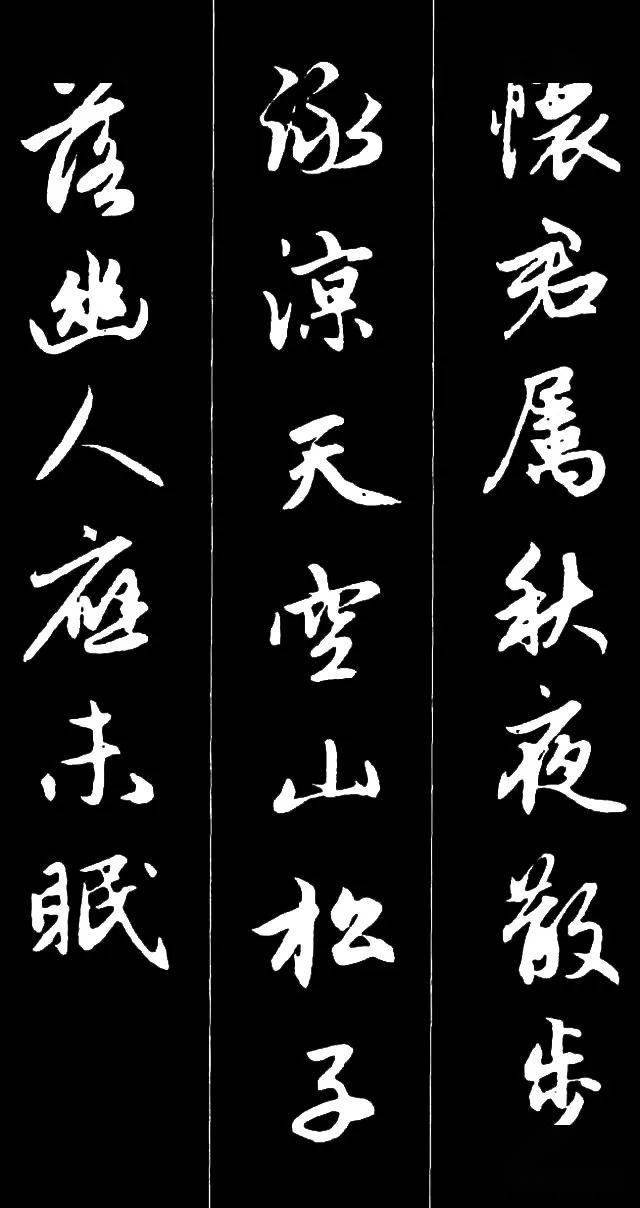 懷君属秋夜散步
詠凉天空山松子
落幽人應未眠